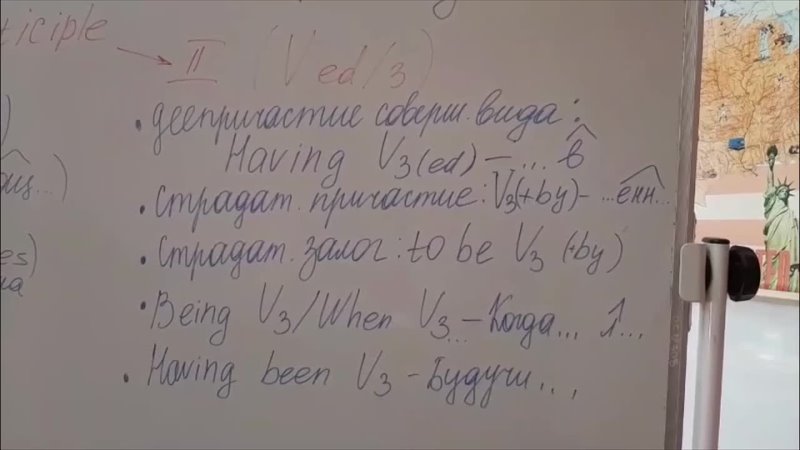 ticiple
II (V ed/3)
• деепричастие соверш. вида:
Having V3(ed) – ... в
ащ...)
• Страдат. причастие: V3(+by) - ...енн...
es)
• Страдат. залог: to be V3 (+by)
на
• Being V3/When V3... – Когда... л...
• Having been V3 – Будучи...,